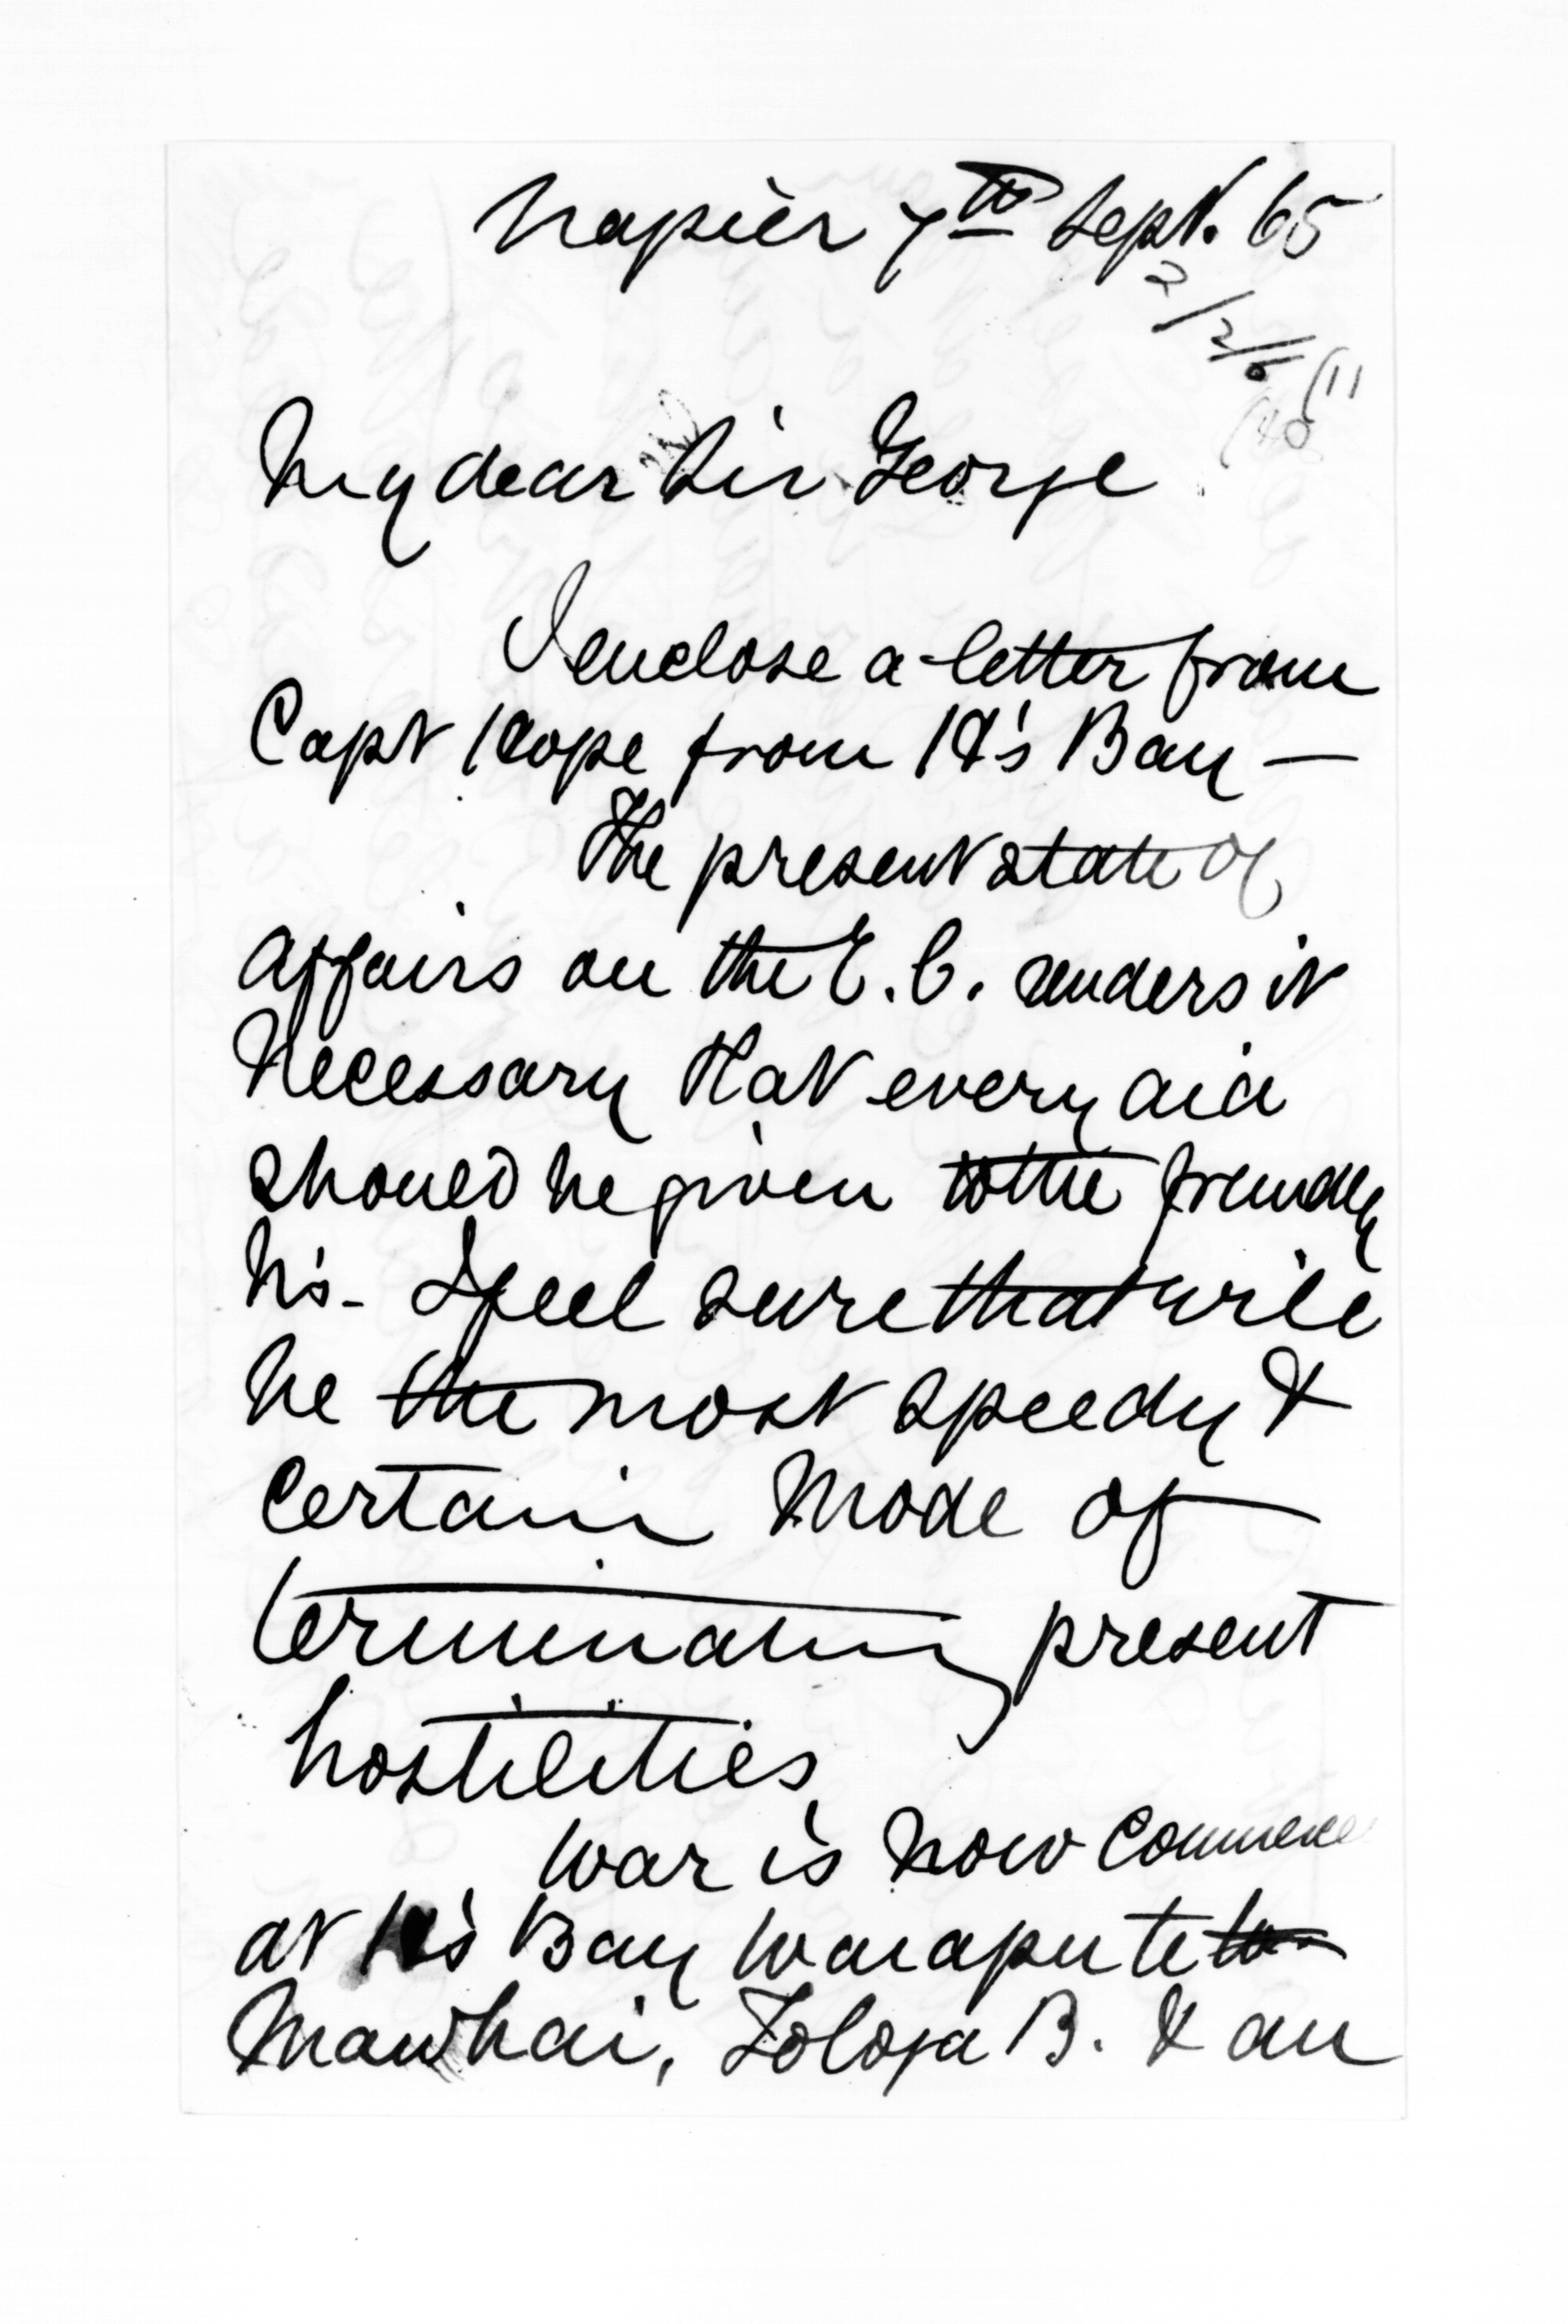 Napier 7th Sept. 65
2/2/6
My dear Sir George
I enclose a letter from
Capt Hope from H's Bay —
The present state of
affairs on the E. C. renders it
necessary that every aid
should be given to the friendly
N's - I feel sure that will
be the most speedy &
certain mode of
terminating present
hostilities
War is now commence
at H's Bay Waiapu
Mawhai, Tologa B. & an